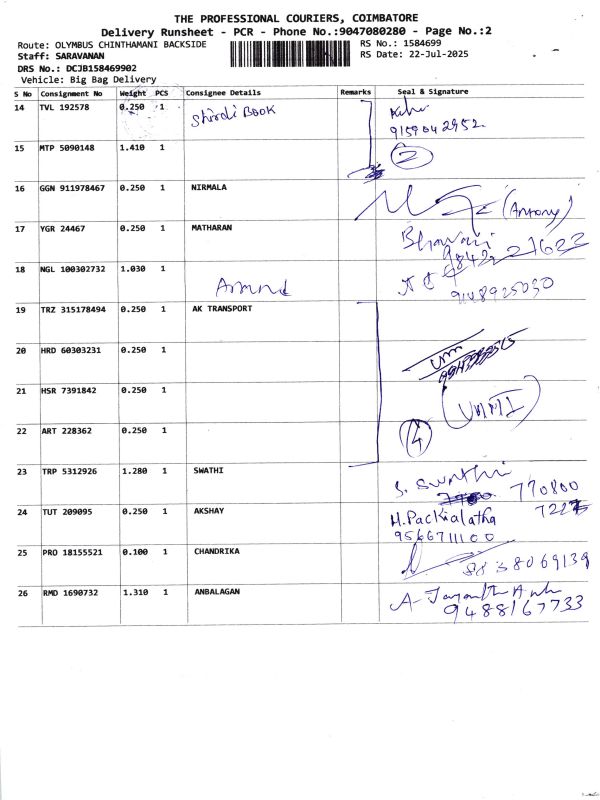 THE PROFESSIONAL COURIERS, COIMBATORE
Delivery Runsheet - PCR - Phone No.:9047080280 - Page No.:2
Route: OLYMBUS CHINTHAMANI BACKSIDE RS No.: 1584699
Staff: SARAVANAN RS Date: 22-Jul-2025
DRS No.: DCJB158469902
Vehicle: Big Bag Delivery
S No Consignment No Weight PCS Consignee Details Remarks Seal & Signature
14 TVL 192578 0.250 1 Shirdi Book
9159042952
15 MTP 5090148 1.410 1 2
16 GGN 911978467 0.250 1 NIRMALA (Antony)
17 YGR 24467 0.250 1 MATHARAN Bhavani
18 NGL 100302732 1.030 1 Anand
9148925030
19 TRZ 315178494 0.250 1 AK TRANSPORT
20 HRD 60303231 0.250 1
21 HSR 7391842 0.250 1
22 ART 228362 0.250 1 4
23 TRP 5312926 1.280 1 SWATHI S. Swathi
770800
24 TUT 209095 0.250 1 AKSHAY H.Packialatha
9566711100
25 PRO 18155521 0.100 1 CHANDRIKA
26 RMD 1690732 1.310 1 ANBALAGAN
9488167733